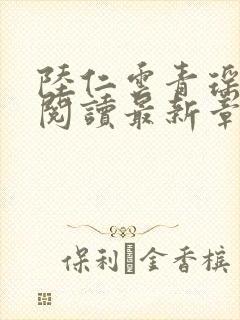 陸仁雲青瑤
閱讀最新章
保利 金香檳